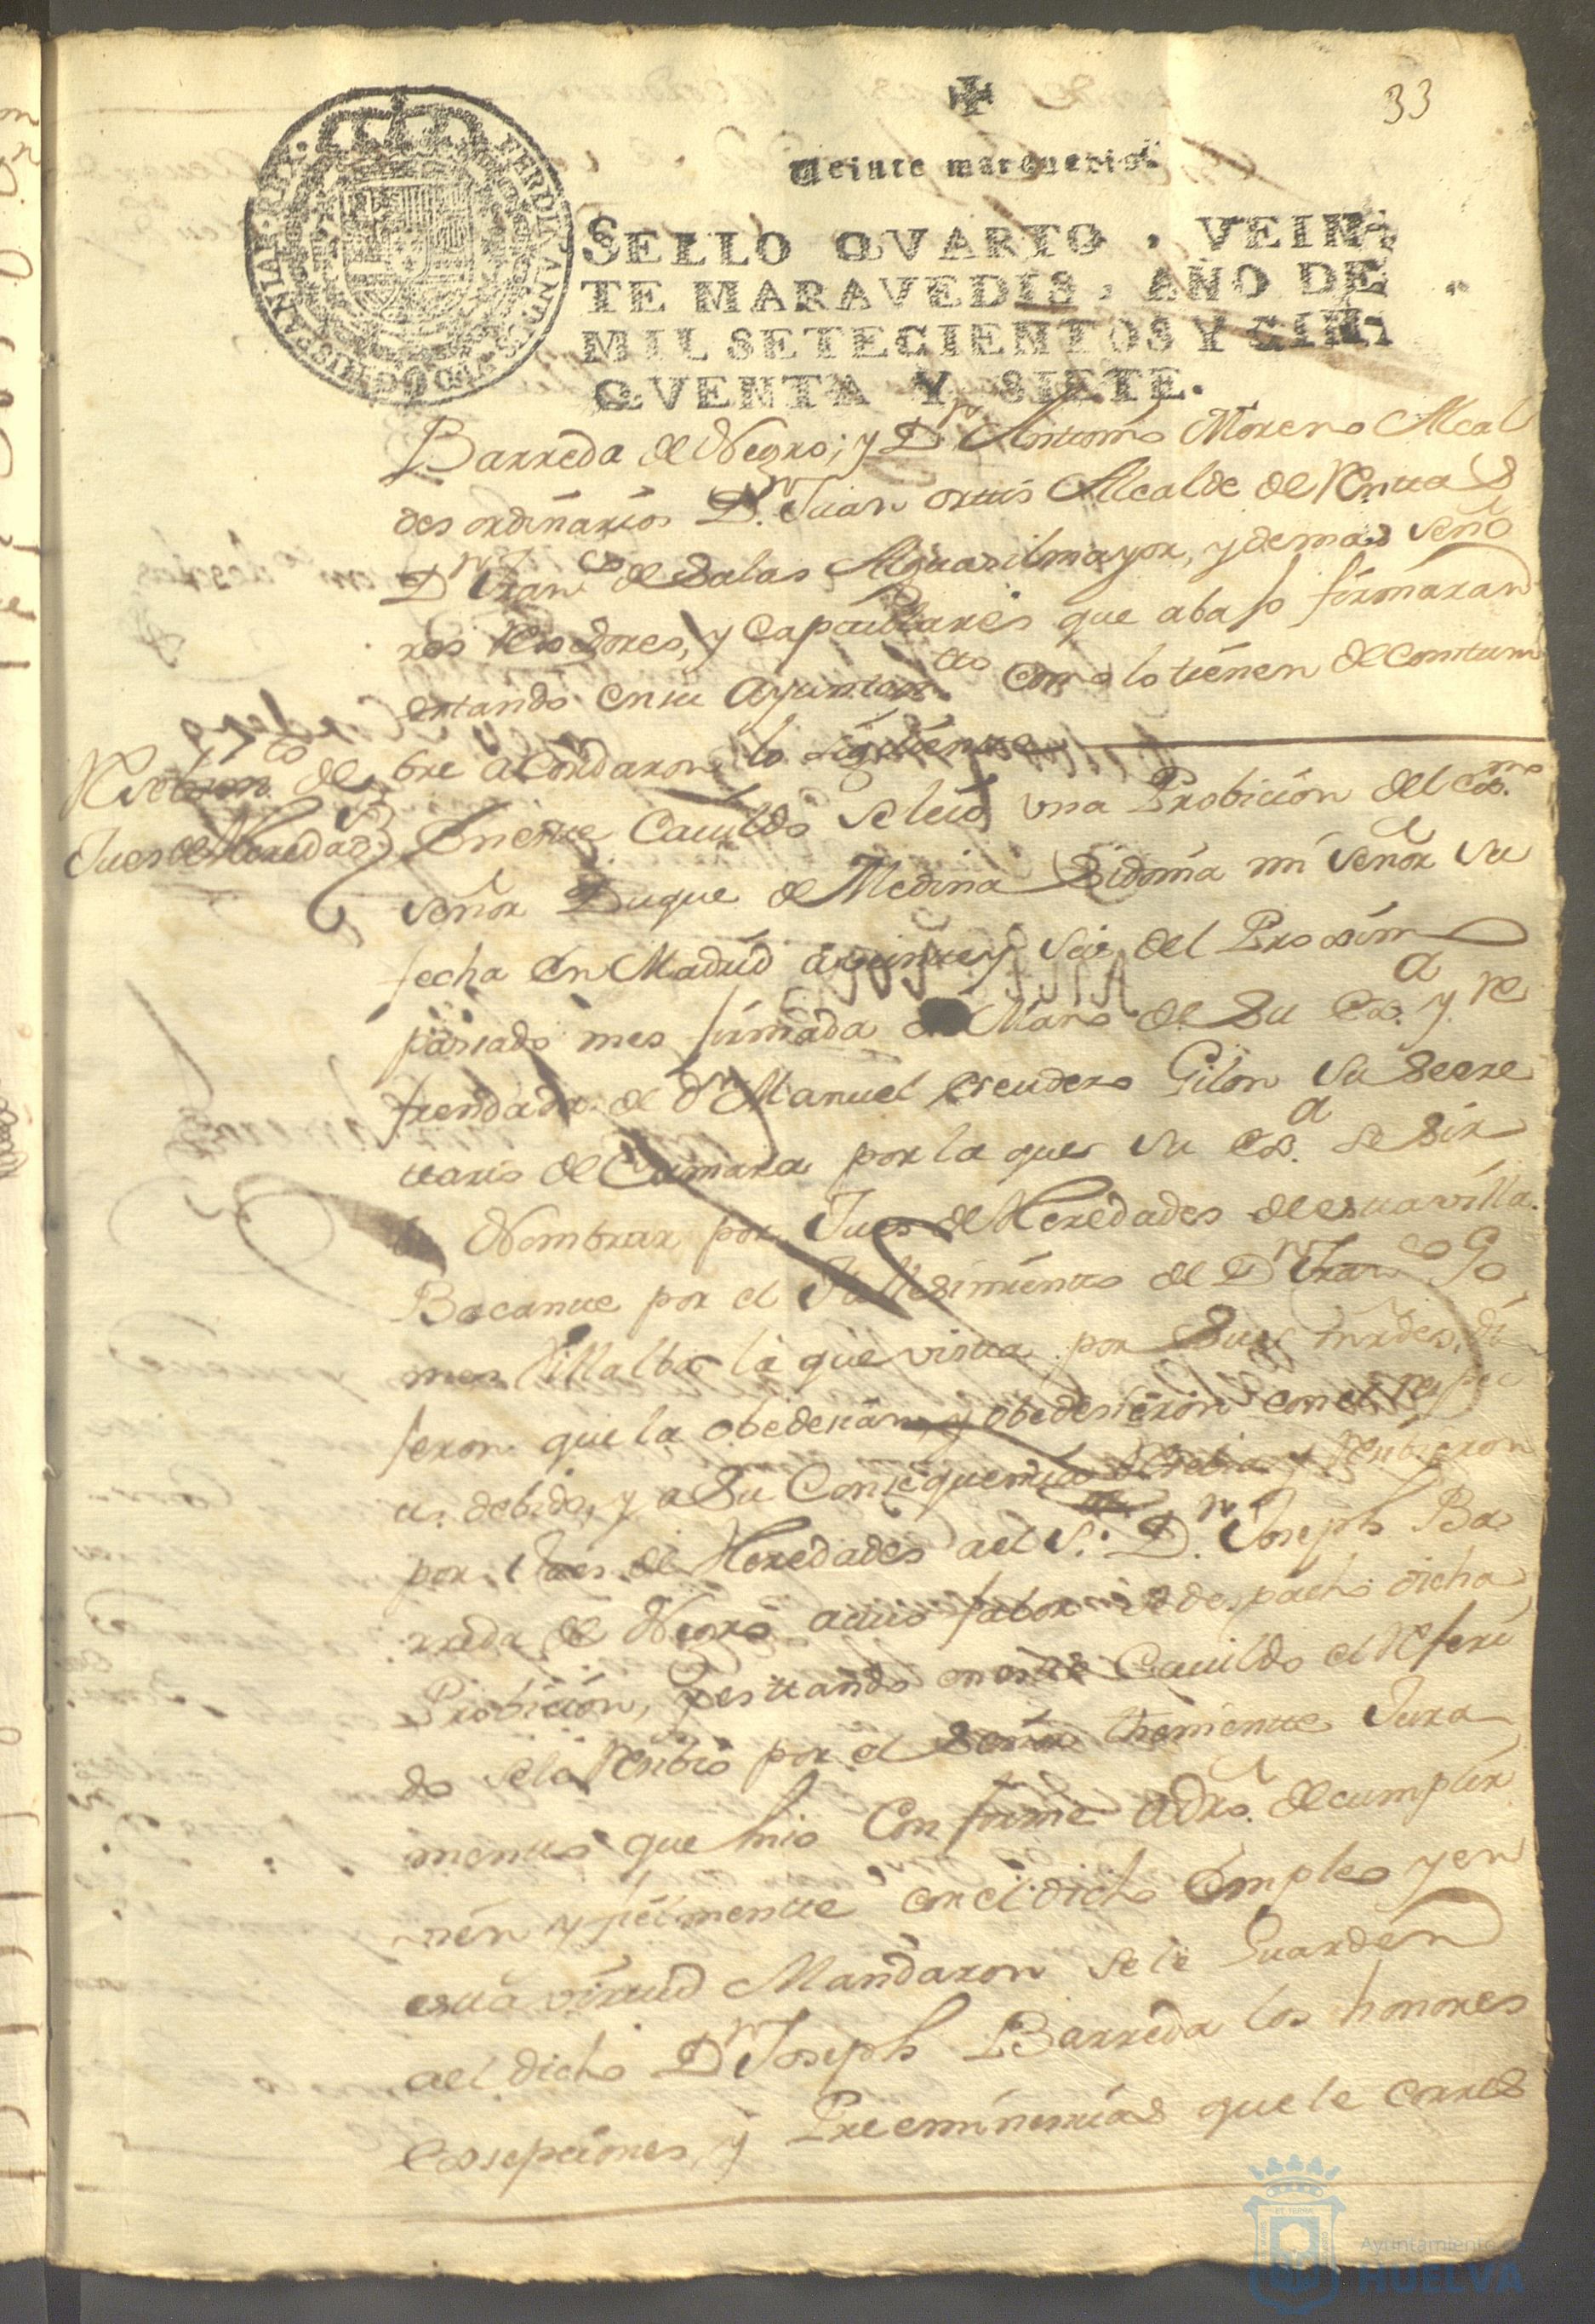 33
Veinte maravedis
SELLO QVARTO, VEIN-
TE MARAVEDIS, AÑO DE
MIL SETECIENTOS Y CIN-
QVENTA Y SIETE.
Barreda de Negro; y Dn Antonio Moreno Alcal
des ordinarios Dn. Juan ortis Alcalde de
Dn Franco de Salas Alguasil mayor, y demas Seño
res Rexidores, y Capitulares que abajo firmaran
estando en su Ayuntamto como lo tienen de costum
bre acordaron lo siguiente
Resivimto de
Jues de Heredads
En este Cavildo se leió una Probision del Exmo
Señor Duque de Medina Sidonia mi Señor su
fecha en Madrid a veinte y seis del Proxim
pasado mes firmada de Mano de Su Exa. y re
frendada de Dn Manuel escudero Gilon su Secre
tario de Camara por la que su Exa. se sir
Nombrar por Jues de Heredades de esta villa
Bacante por el fallesimiento de Dn Franco Go
mes Villalba la que vista por Sus mrdes. di
jeron que la obedesian, y obedesieron con el respec
to debido, y a Su Consequensia y Resibieron
por Jues de Heredades ael Sr. Dn. Joseph Ba
rreda de Negro acuio fabor se despacho dicha
Probision, y estando en este Cavildo el referi
do se le Resibio por el Señor theniente Jura
mento que hiso Conforme a dro. de cumplir
vien y fielmente con el dicho Empleo y en
esta virtud Mandaron se le Guarden
ael dicho Dn Joseph Barreda los honores
exsepciones, y Preeminensias que le corres
Ayuntamiento de
HUELVA